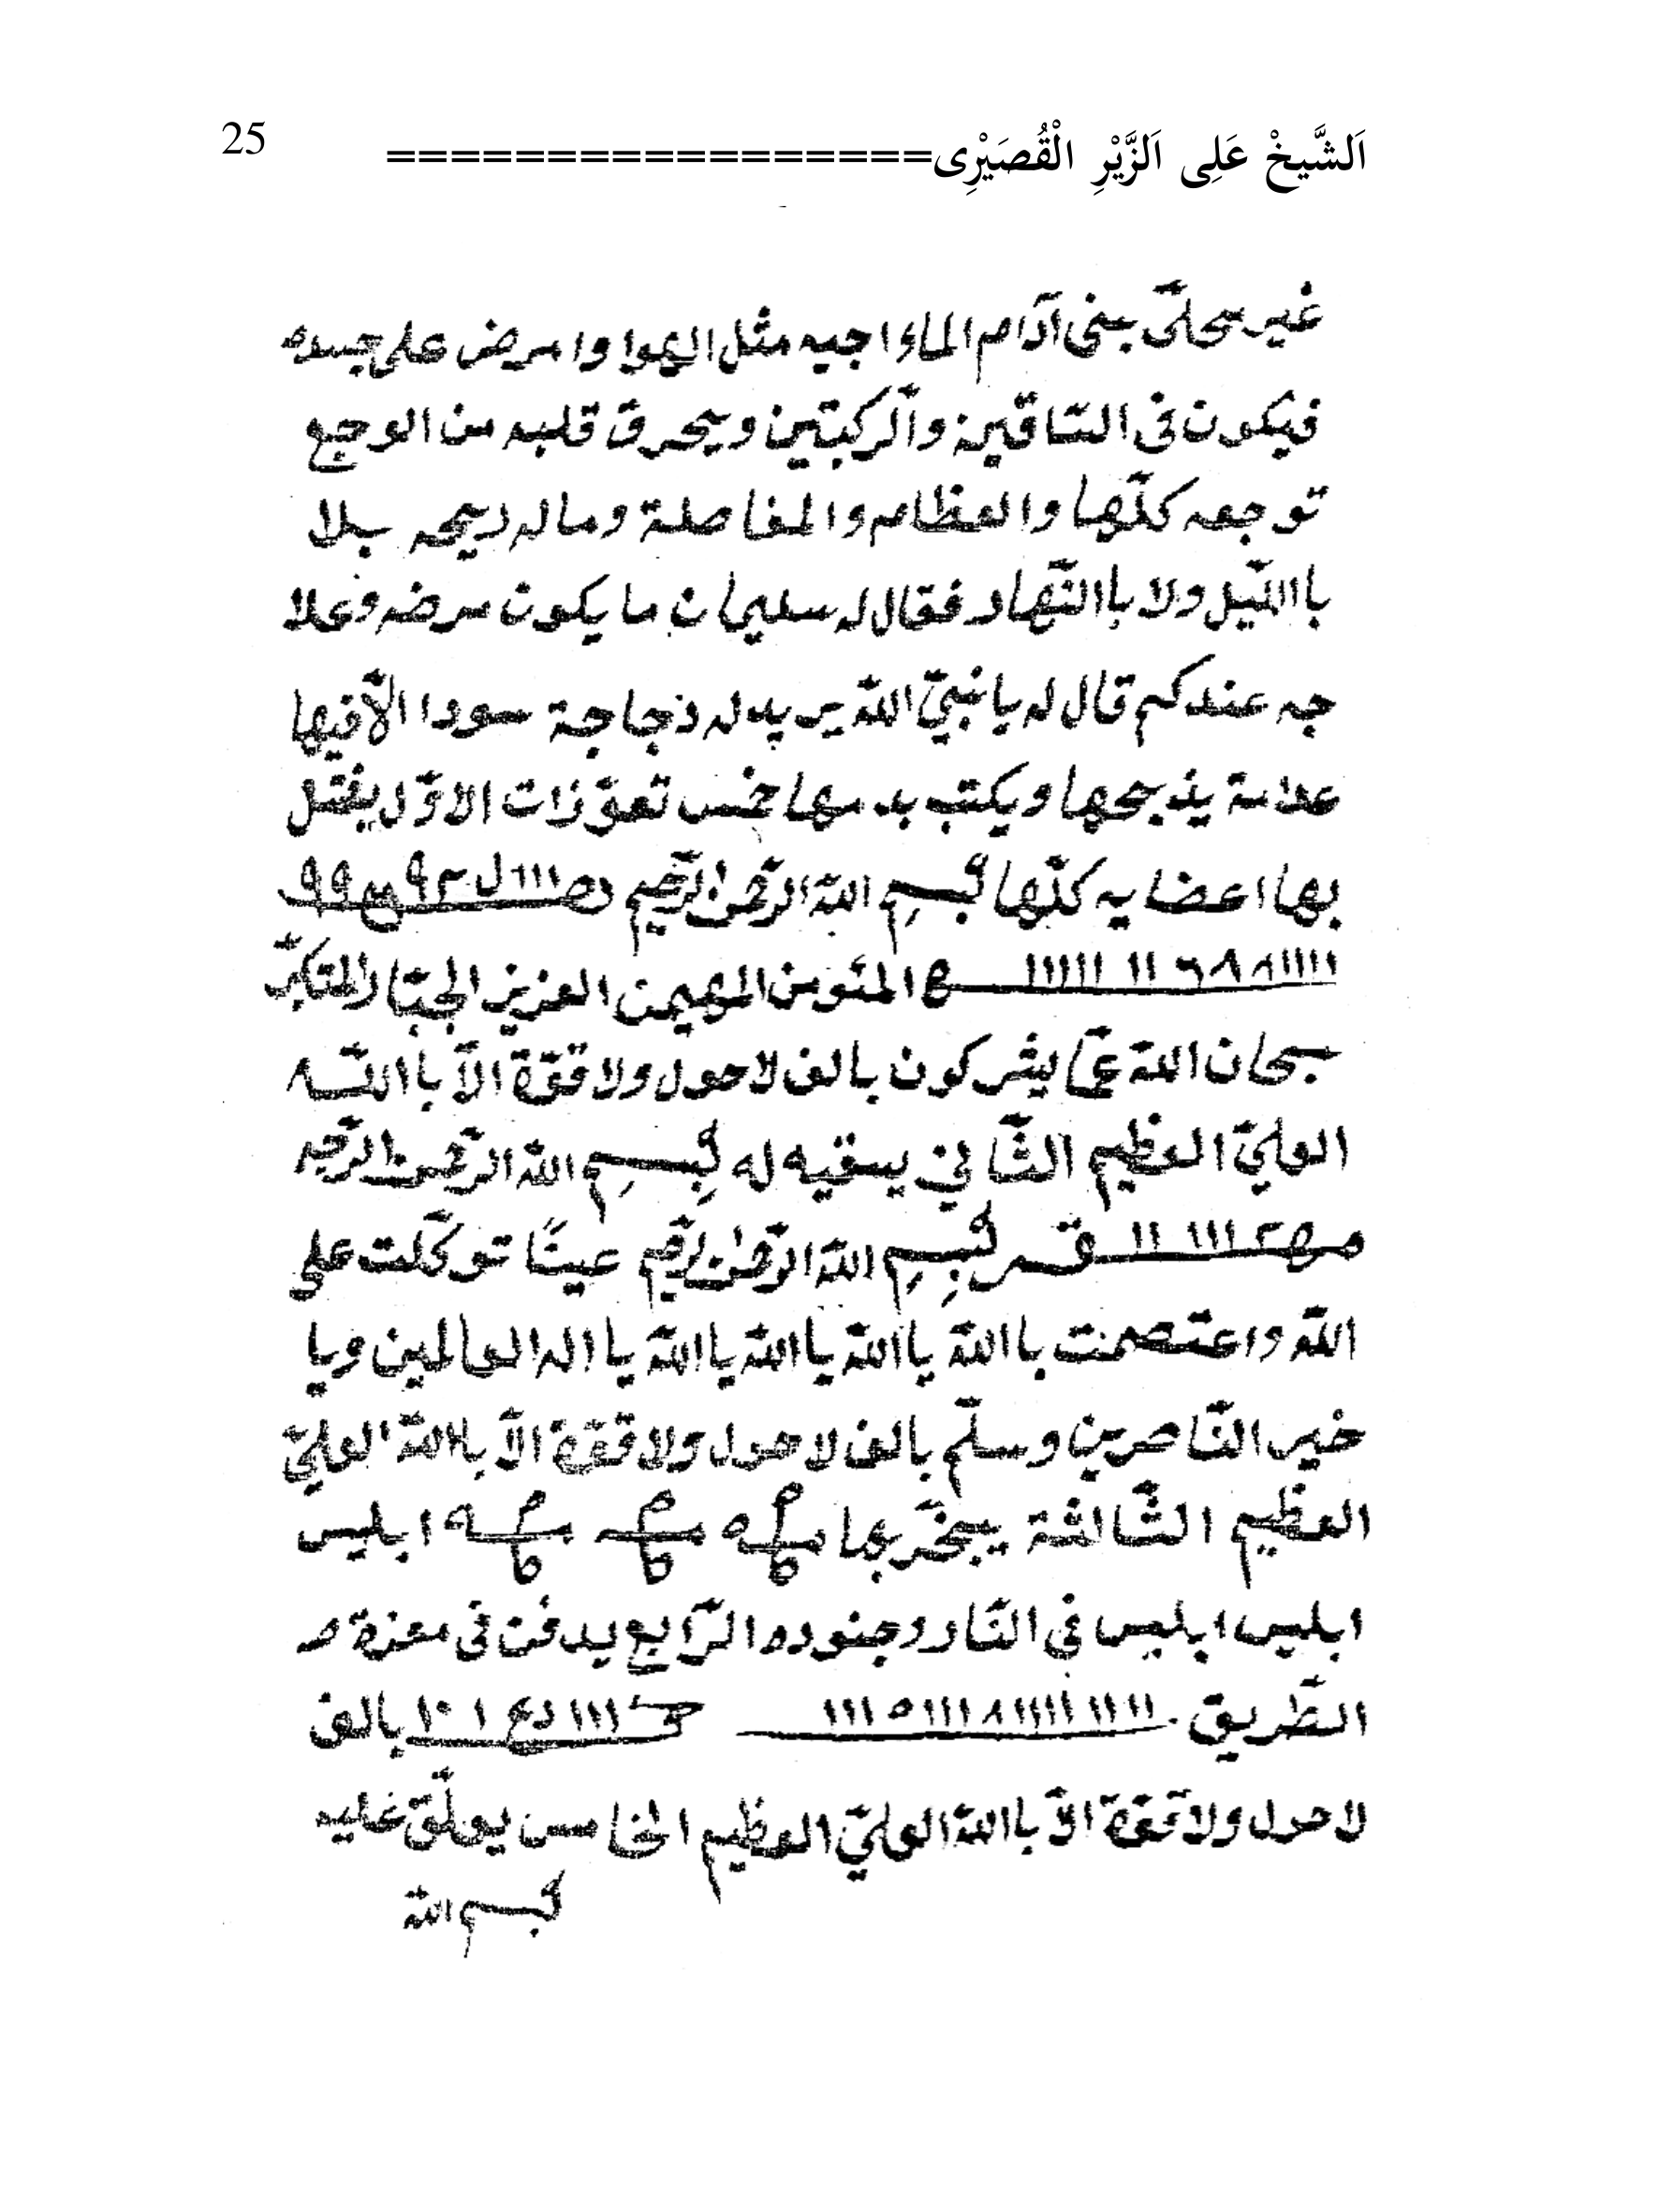 اَلشَّيخْ عَلِى اَلزَّيْرِ الْقُصَيْرِى================= 25
غير محلّى بنى آدام الماء اجيه مثل الهوا وامرض على جسده
فيكون فى السّاقين والركبتين ويحرق قلبه من الوجع
توجعه كلّها والعظام والمفاصلة وماله ريحه بلا
باالليل ولا باالنّهار فقال له سليمان ما يكون مرضه وعلا
جه عندكم قال له يا نبيّ اللّه يريد له دجاجة سودا الّا فيها
علامة يذبحها ويكتب بدمها خمس تعوّذات الاوّل يغتسل
بها اعضايه كلّها بسم اللّه الرّحمن الرّحيم
المئومن المهيمن العزيز الجبّار المتكبّر
سبحان اللّه عمّا يشركون بالف لا حول ولا قوّة الّا با اللّه
العليّ العظيم الثّاني يسقيه له بسم اللّه الرّحمن الرّحيم
بسم اللّه الرّحمن الرّحيم عينًا توكّلت على
اللّه واعتصمت با اللّه يا اللّه يا اللّه يا اللّه يا اله العالمين ويا
خير النّاصرين وسلّم بالف لا حول ولا قوّة الّا با اللّه العليّ
العظيم الثّالثة يبخّر بها ابليس
ابليس ابليس في النّار وجنوده الرّابع يدفن فى
الطّريق ١١١١ ١١١١١ ٨ ١١١ ٥ ١١١ بالف
لا حول ولا قوّة الّا با اللّه العليّ العظيم الخامس يعلّق عليه
بسم اللّه